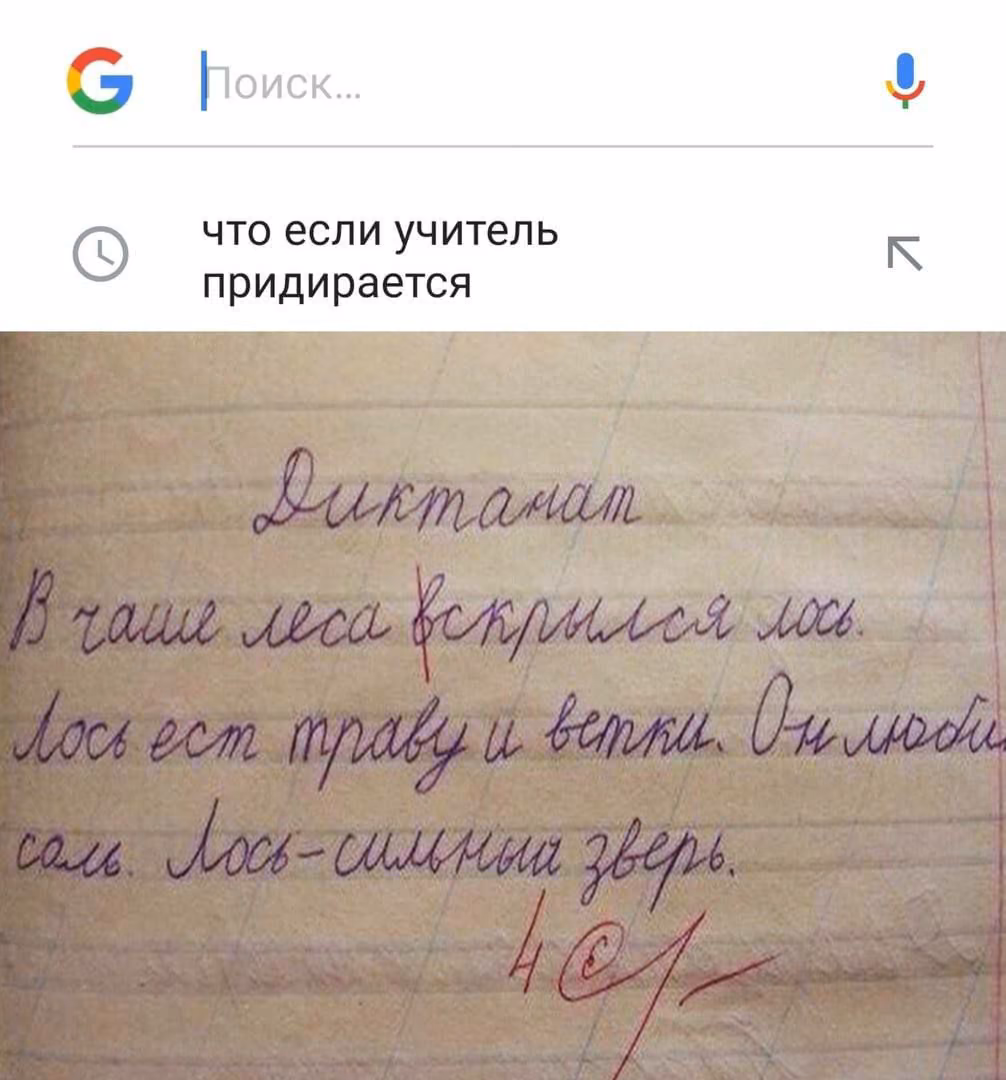 Поиск...
что если учитель
придирается
Диктанат
В чаше леса вскрылся лось.
Лось ест траву и ветки. Он люби
соль. Лось-сильный зверь.
4